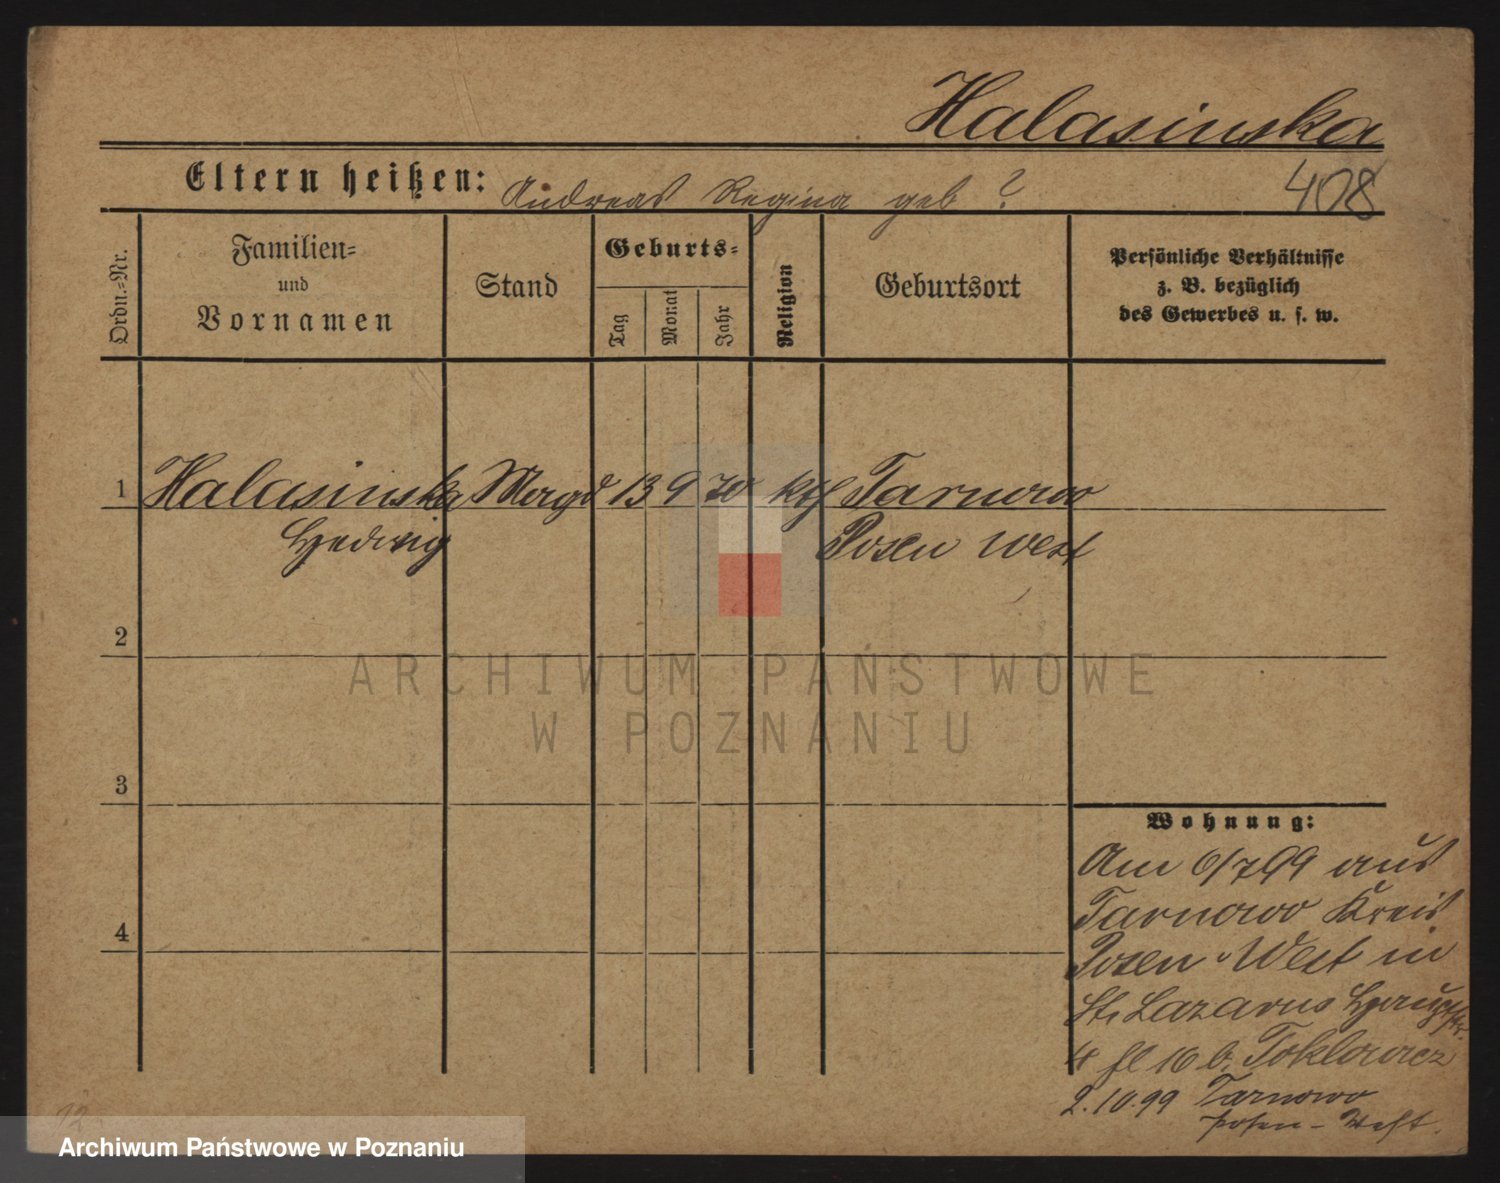 Halasinska
Eltern heißen: Andreas Regina geb ?
408
Ordn.-Nr.
Familien-
und
Vornamen
Stand
Geburts-
Tag
Monat
Jahr
Religion
Geburtsort
Persönliche Verhältnisse
z. B. bezüglich
des Gewerbes u. s. w.
1 Halasinska Magd 13 9 70 kth Tarnowo
Hedwig Posen West
2
ARCHIWUM PAŃSTWOWE
W POZNANIU
3
Wohnung:
Am 6/7 99 aus
Tarnowo Kreis
4
Posen West in
St. Lazarus Hauptstr.
4 fl 16 b.
2.10.99 Tarnowo
Posen - West.
12.
Archiwum Państwowe w Poznaniu